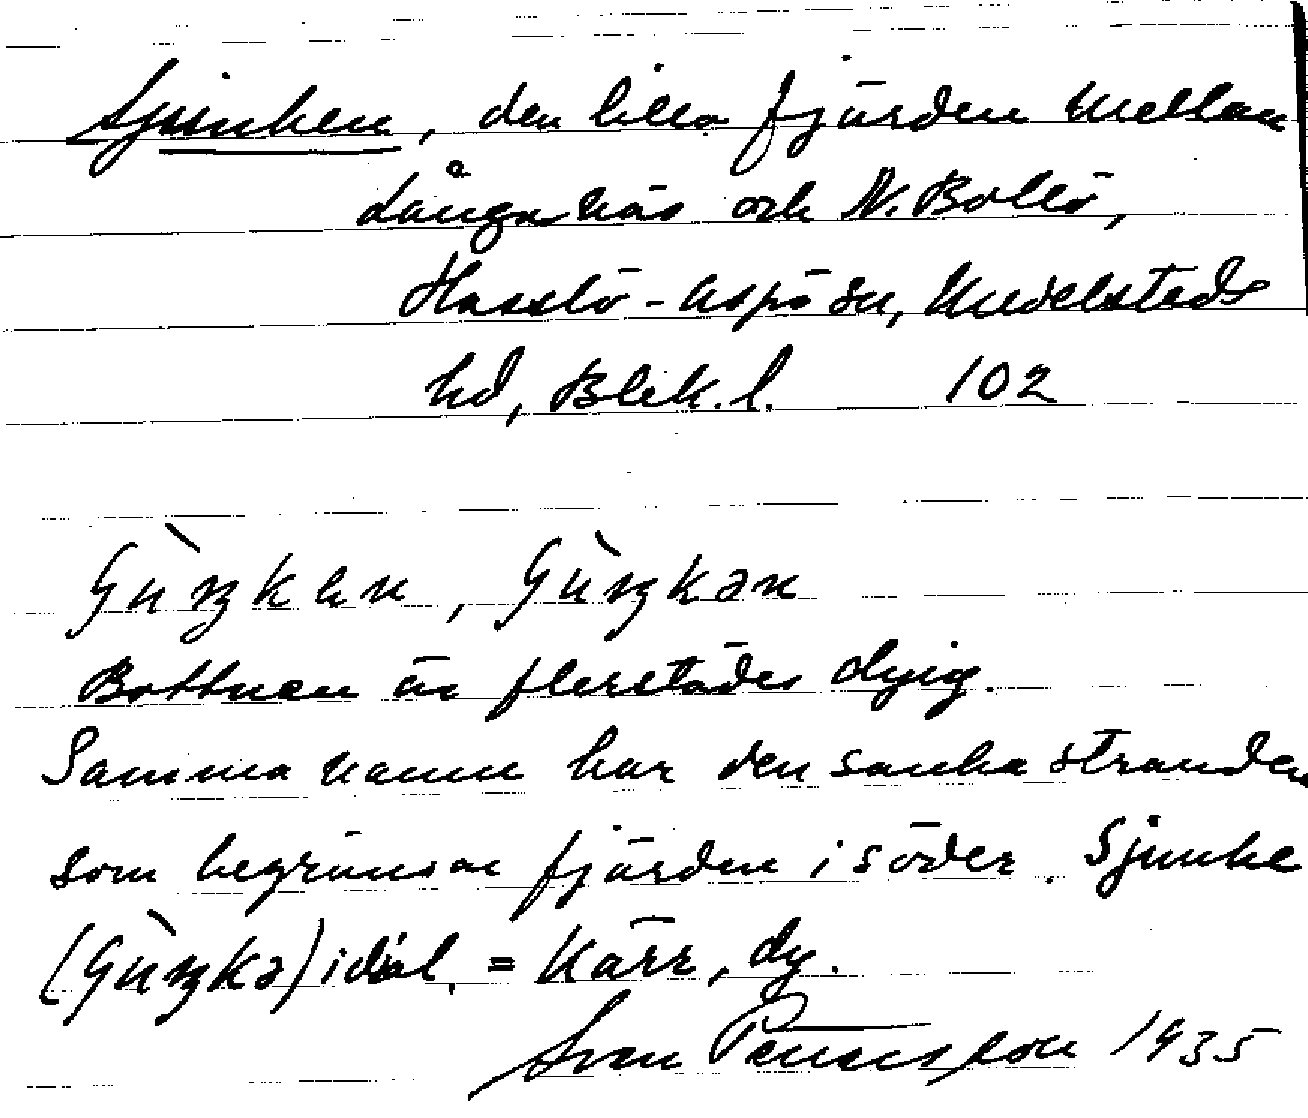 Sjunken, den lilla fjärden mellan
Långanäs och N. Bollö,
Hasslö-Aspö sn, Medelstads
hd, Blek. l. 102
Bottnen är flerstädes dyig.
Samma namn har den sanka stranden
som begränsar fjärden i söder. Sjunke
i dial. = kärr, dy.
Sven Benson 1935